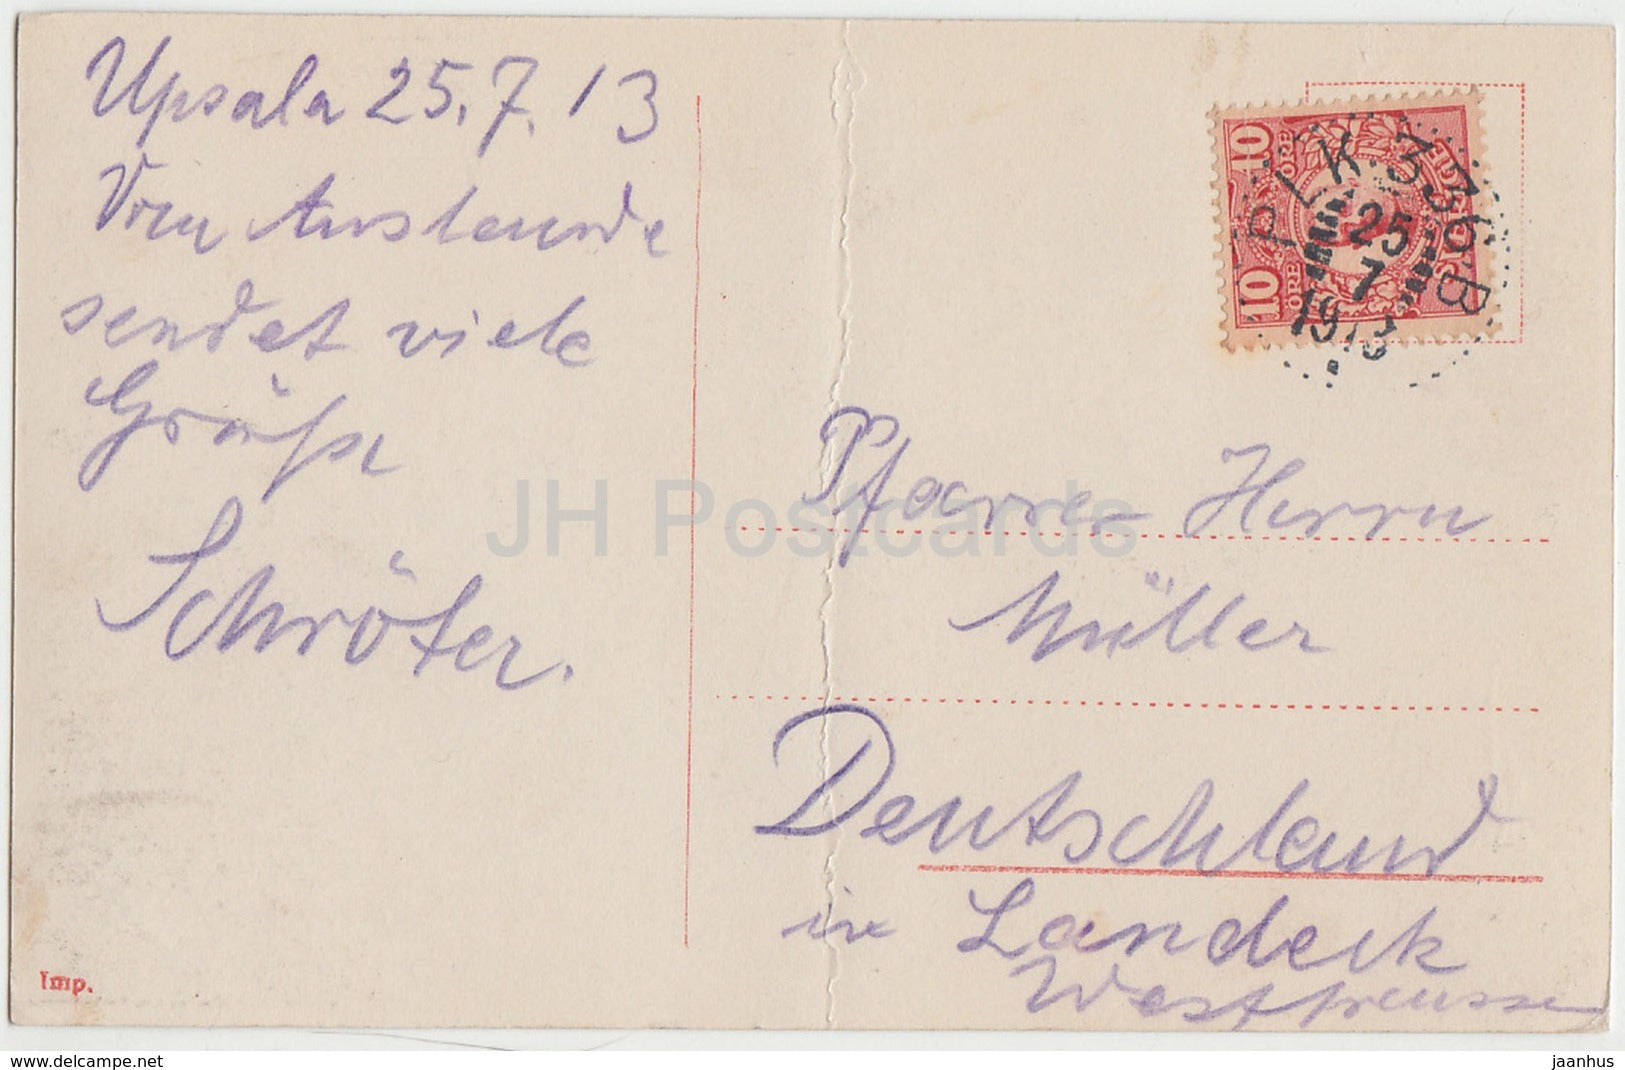 Upsala 25.7.13
Vom Auslande
sendet viele
Grüße
Schröter.
10 ÖRE 10 ÖRE
PLK 336 B
25
7
1913
Pfarrer Herrn
Müller
Deutschland
in Landeck
Westpreussen
Imp.
JH Postcards
www.delcampe.net
jaanhus